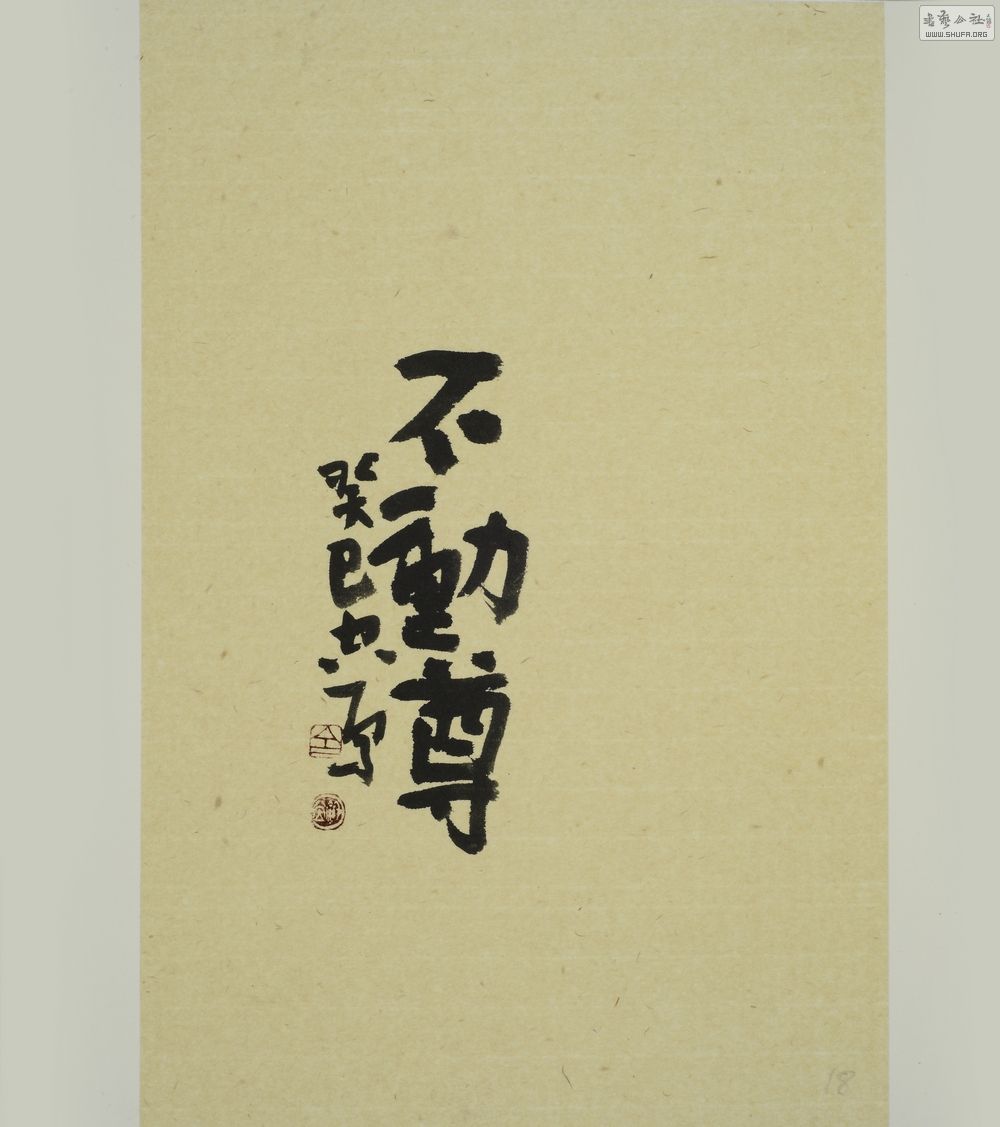 不動尊
癸巳
書藝公社
WWW.SHUFA.ORG
18